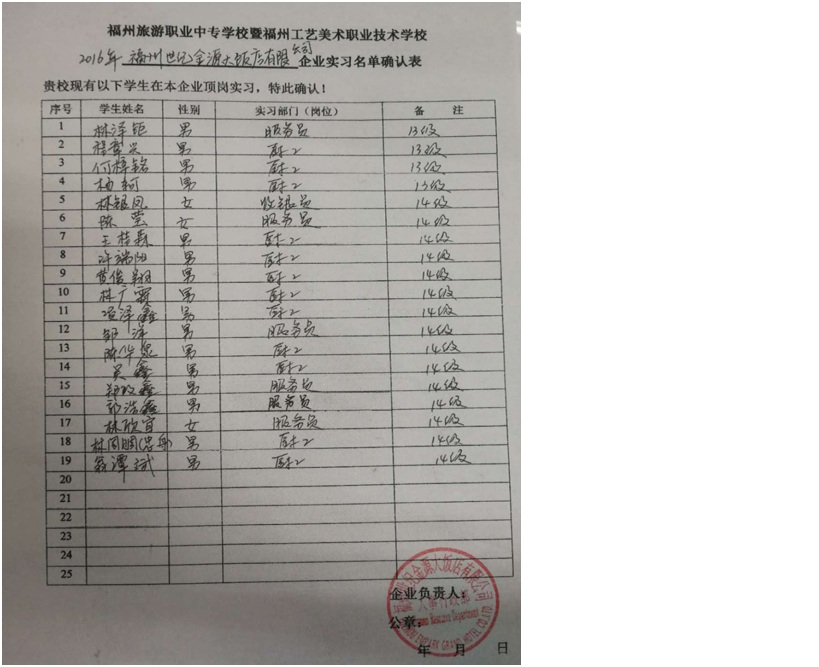 福州旅游职业中专学校暨福州工艺美术职业技术学校
2016年 福州世纪金源大饭店有限公司 企业实习名单确认表
贵校现有以下学生在本企业顶岗实习，特此确认！
序号 学生姓名 性别 实习部门（岗位） 备 注
1 林泽钜 男 服务员 13级
2 男 厨工 13级
3 何梓铭 男 厨工 13级
4 杨轲 男 厨工 13级
5 林银凤 女 收银员 14级
6 陈莹 女 服务员 14级
7 王桂森 男 厨工 14级
8 许端阳 男 厨工 14级
9 黄俊翔 男 厨工 14级
10 林广霖 男 厨工 14级
11 泽鑫 男 厨工 14级
12 邹洋 男 服务员 14级
13 陈华泉 男 厨工 14级
14 吴鑫 男 厨工 14级
15 鑫 男 服务员 14级
16 郭浩鑫 男 服务员 14级
17 林欣宜 女 服务员 14级
18 林 男 厨工 14级
19 翁谭斌 男 厨工 14级
20
21
22
23
24
25
企业负责人：
公章：
年 月 日
世纪金源大饭店有限公司
人事行政部
Human Resources Department
EMPARK GRAND HOTEL CO.,LTD.